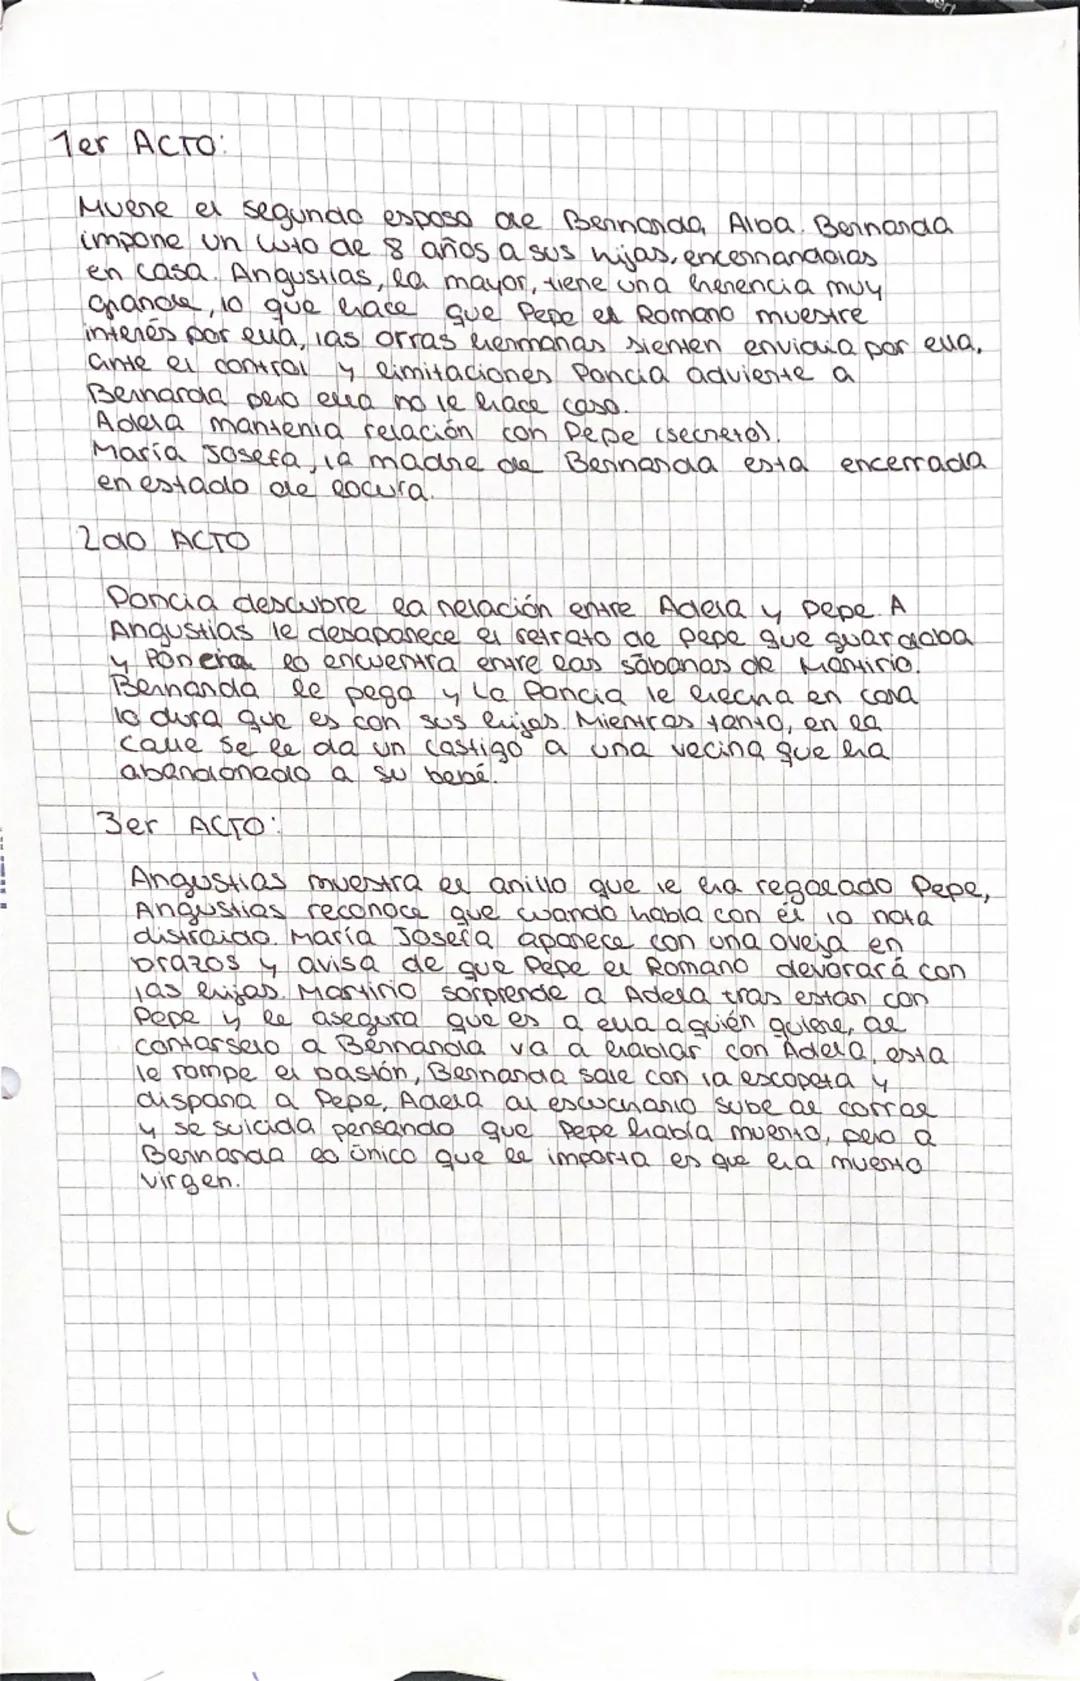 1er ACTO:
Muere el segundo esposo de Bernarda Alba. Bernarda
impone un luto de 8 años a sus hijas, encerrandolas
en casa. Angustias, la mayor, tiene una herencia muy
grande, lo que hace que Pepe el Romano muestre
interés por ella, las otras hermanas sienten envidia por ella,
ante el control y limitaciones Poncia advierte a
Bernarda pero ella no le hace caso.
Adela mantenia relación con Pepe (secreto).
María Josefa, la madre de Bernarda esta encerrada
en estado de locura.
2do ACTO
Poncia descubre la relación entre Adela y Pepe. A
Angustias le desaparece el retrato de Pepe que guardaba
y Poncia lo encuentra entre las sábanas de Martirio.
Bernarda le pega y la Poncia le hecha en cara
lo dura que es con sus hijas. Mientras tanto, en la
calle se le da un castigo a una vecina que ha
abandonado a su bebé.
3er ACTO:
Angustias muestra el anillo que le ha regalado Pepe,
Angustias reconoce que cuando habla con él lo nota
distraido. María Josefa aparece con una oveja en
brazos y avisa de que Pepe el Romano devorará con
las hijas. Martirio sorprende a Adela tras estar con
Pepe y le asegura que es a ella a quién quiere, al
contarselo a Bernarda va a hablar con Adela, esta
le rompe el bastón, Bernarda sale con la escopeta y
dispara a Pepe, Adela al escucharlo sube al corral
y se suicida pensando que Pepe había muerto, pero a
Bernarda lo único que le importa es que ha muerto
virgen.